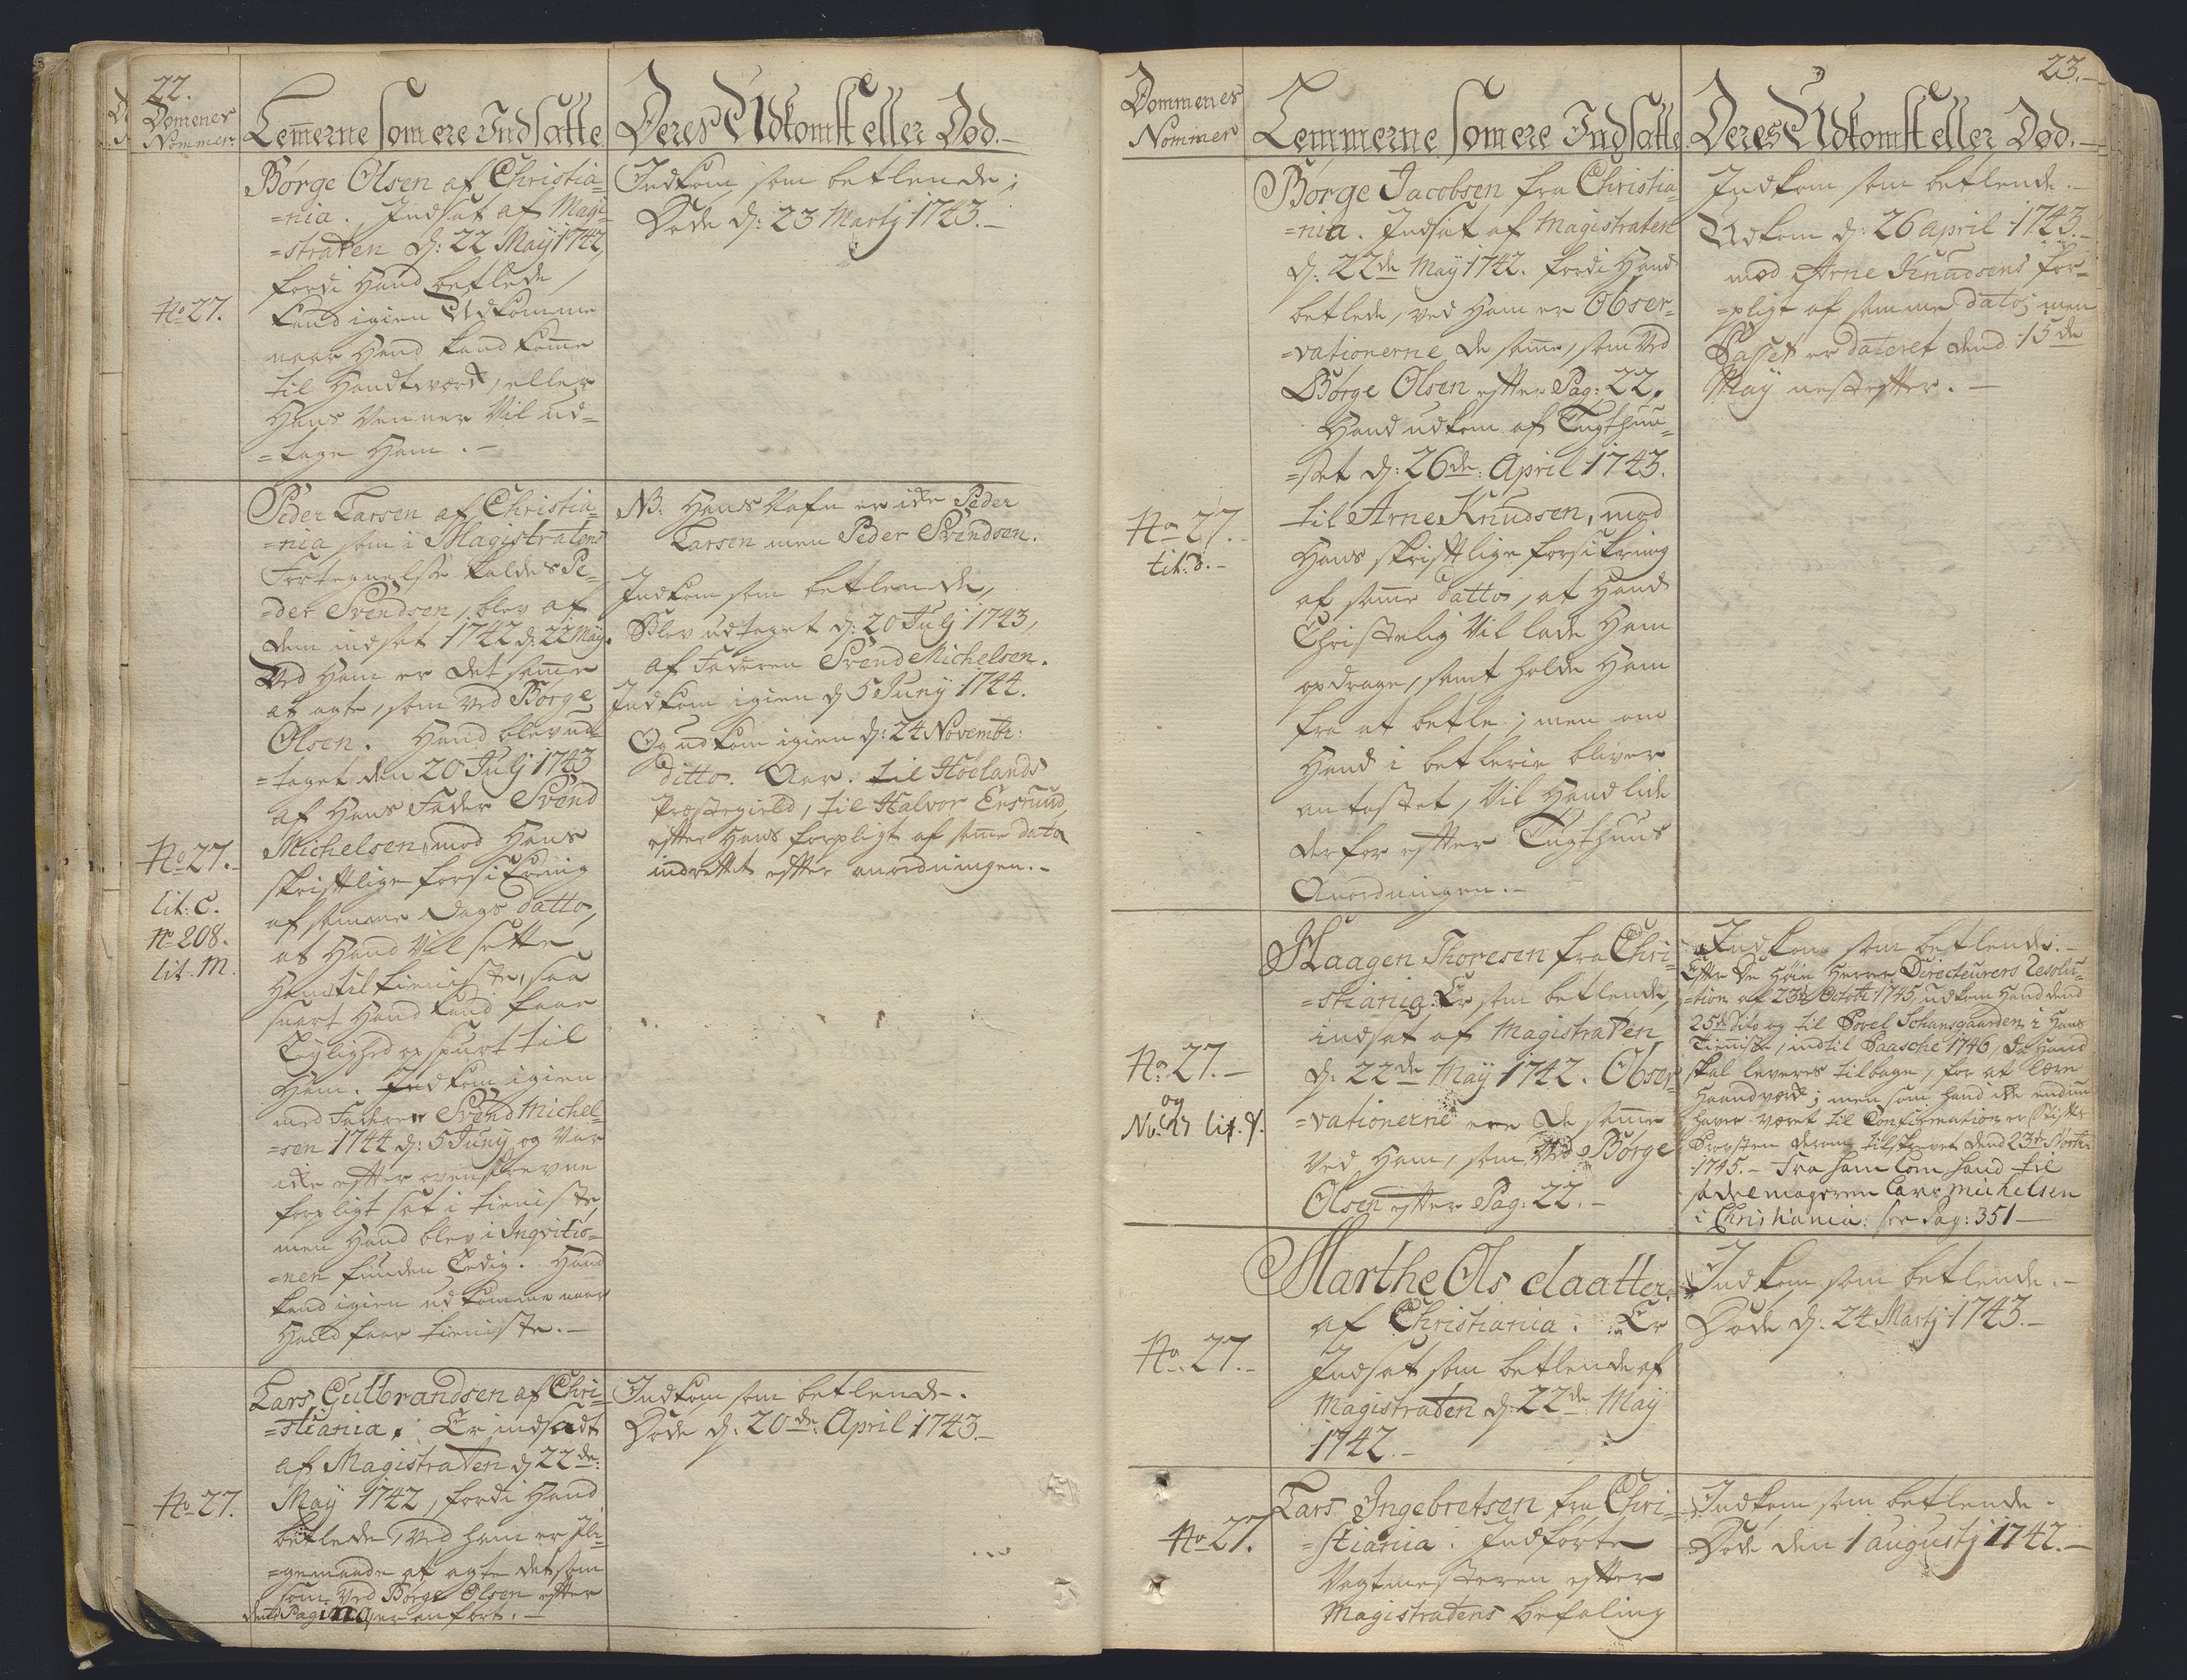 22.
Domenes
Nommer
Lem̄erne som ere Indsatte
Deres Udkomst eller Død.
Børge Olsen af Christia=
=nia. Indsat af Magi=
=straten d: 22 Maÿ 1742,
fordi Hand betlede,
kand igien Udkomme
naar Hand kand kom̄e
til Handtværk, eller
Hans Venner Vil ud=
=tage Ham.
No 27.
Indkom som betlende;
Døde d: 23 Martj 1743.
Peder Larsen af Christia=
=nia som i Magistratens
Fortegnelse kaldes Pe=
=der Svendsen, blev af
dem indsat 1742 d: 22 Maÿ.
Ved Ham er det sam̄e
at agte, som ved Børge
Olsen. Hand blev ud=
=taget den 20 Julj 1743
af Hans Fader Svend
Michelsen, mod Hans
skrifftlige forsikring
af samme Dags datto,
at Hand Vil sette
Ham til tieniste, saa
snart Hand kand faae
Leylighed opspurt til
Ham. Indkom igien
med Faderen Svend Michel=
=sen 1744 d: 5 Junÿ og Var
ikke effter ovenskrevne
forpligt sat i tieniste,
men Hand blev i Inqvitio=
=nen funden Ledig. Hand
kand igien udkomme naar
Hand faar tieniste.
No 27.
lit: C.
No 208.
lit. M.
NB. Hans Nafn er ikke Peder
Larsen men Peder Svendsen.
Indkom som betlende,
Blev udtaget d: 20 Julj 1743,
af Faderen Svend Michelsen.
Indkom igien d 5 Junÿ 1744.
Og udkom igien d: 24 Novembr:
ditto. Aar. til Høelands
Præstegield, til Halvor Ensrund,
effter Hans forpligt af sam̄e dato
indrettet effter anordningen.
Lars Gulbrandsen af Chri=
=stiania, Er indsadt
af Magistraten d 22de:
Maÿ 1742, fordi Hand
betlede, ved ham er Ili=
=gemaade at agte det som
som Ved Børge Olsen effter
dente Pagina er anført.
No 27.
Indkom som betlende.
Døde d: 20de: April 1743.
23.
Dommenes
Nommer
Lemmerne som ere Indsatte
Deres Udkomst eller Død.
Børge Jacobsen fra Christia=
=nia. Indsat af Magistraten
d: 22de Maÿ 1742. fordi Hand
betlede, ved Ham er Obser=
=vationerne de sam̄e, som ved
Børge Olsen effter Pag: 22.
Hand udkom af Tugthuu=
=set d: 26de: April 1743.
til Arne Knudsen, mod
Hans skrifftlige forsikring
af sam̄e datto, at Hand
Christelig Vil lade Ham
opdrage, samt holde Ham
fra at betle; men om
Hand i betlerie bliver
antastet, Vil Hand lide
derfor effter Tugthuus
Anordningen.
No 27.
lit: d.
Indkom som betlende.
Udkom d: 26 april 1743.
mod Arne Knudsens for=
=pligt af samme dato; men
Passet er dateret dend 15de
Maÿ nestefter.
Haagen Thoresen fra Chri=
=stiania. Er som betlende,
indsat af Magistraten
d: 22de Maÿ 1742. Obser=
=vationerne ere de sam̄e
Ved Ham, som Ved Børge
Olsen effter Pag: 22.
No 27.
og
No. 27 lit. Y.
Indkom som betlende:
Effter De Høie Herrer Directeurers Resolu=
=tion af 23de Octobr 1745, udkom Hand dend
25de dito og til Povel Schansgaarden i Hans
Tieniste, indtil Paasche 1746, da Hand
skal leveres tilbage, for at lære
Haandværk; men som hand ikke endnu
haver været til Confirmation er
Provsten derom tilskrevet dend 23de
1745. Fra ham kom hand til
sadelmageren Lars Michelsen
i Christiania: see Pag: 351
Marthe Ols daatter
af Christiania. Er
Indsat som betlende af
Magistraten d: 22de: Maÿ
1742.
No. 27.
Indkom som betlende.
Døde d: 24 Martj 1743.
Lars Ingebretsen fra Chri=
=stiania. Indførte
Vagtmesteren effter
Magistratens befaling
No 27.
Indkom som betlende.
Døde den 1 augustj 1742.